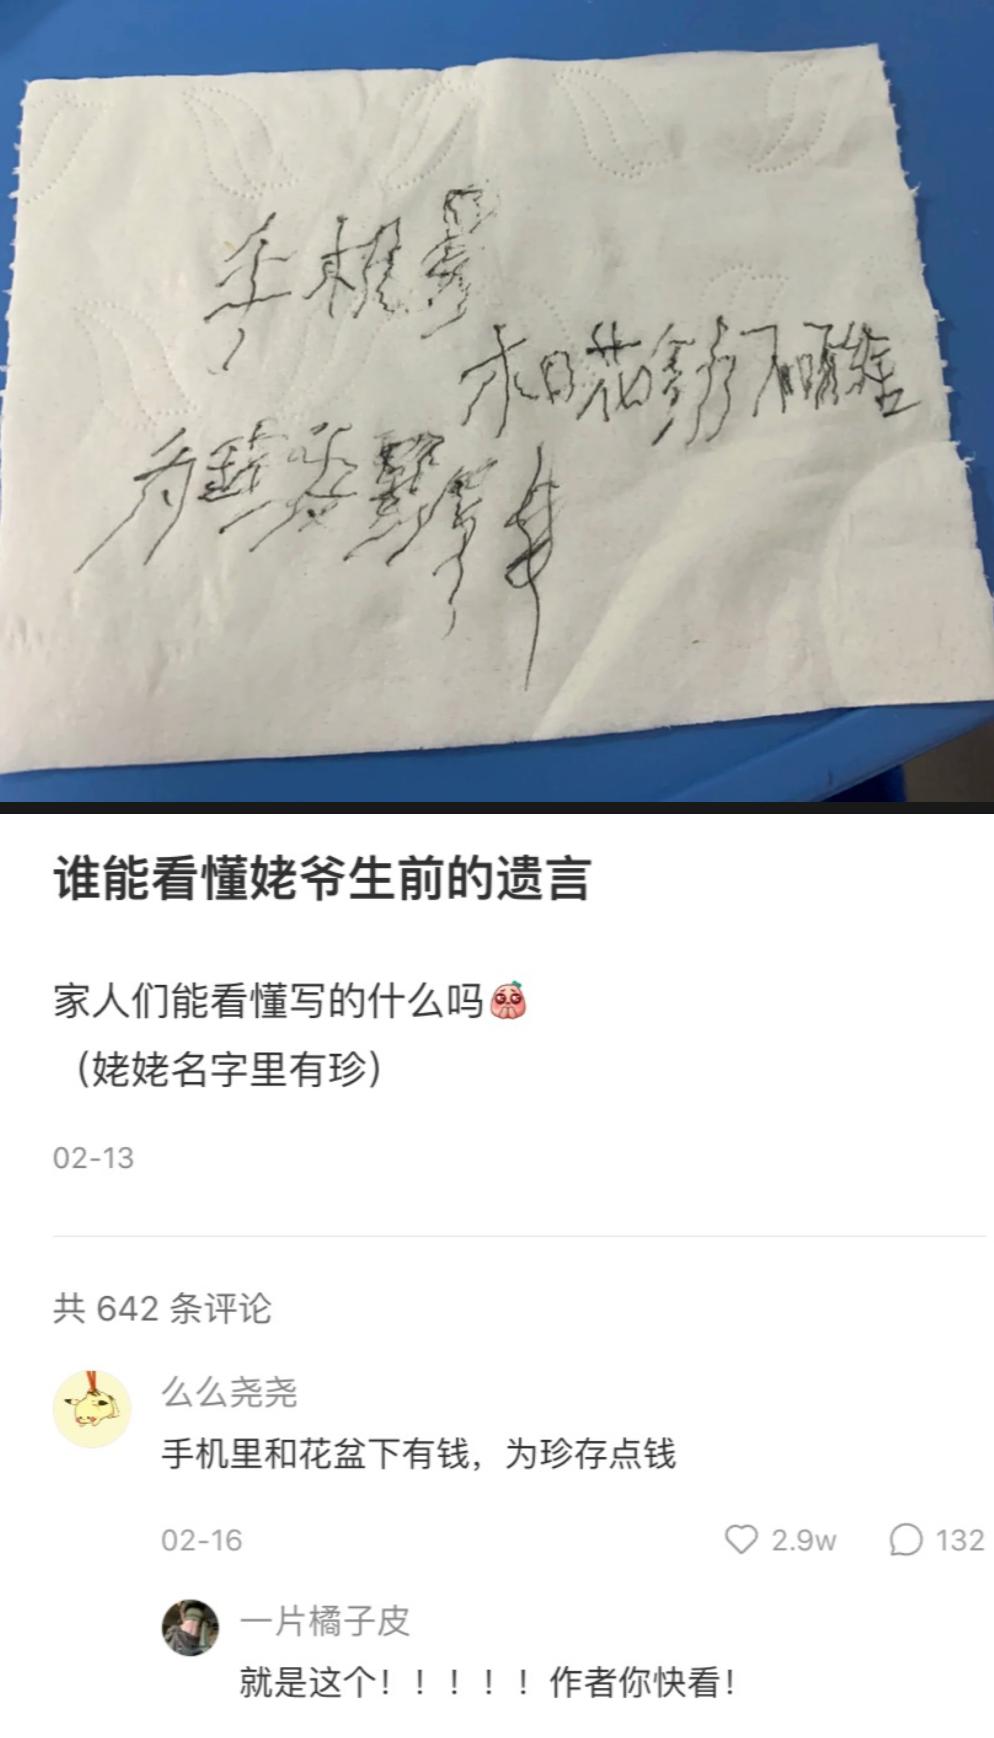 手机
和花盆下
谁能看懂姥爷生前的遗言
家人们能看懂写的什么吗
（姥姥名字里有珍）
02-13
共 642 条评论
么么尧尧
手机里和花盆下有钱，为珍存点钱
02-16 2.9w 132
一片橘子皮
就是这个！！！！！作者你快看！